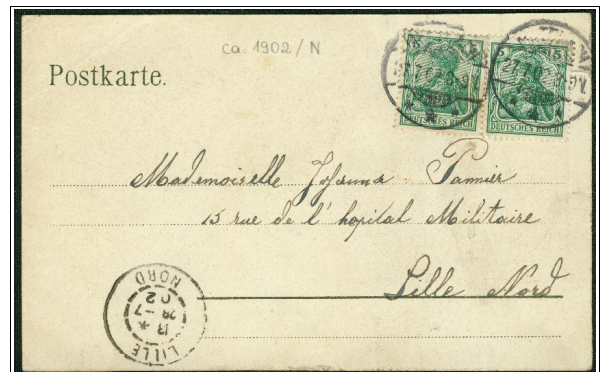 ca. 1902/N
Postkarte.
5 5
DEUTSCHES REICH DEUTSCHES REICH
Mademoiselle Johanna Pannier
15 rue de l'hopital Militaire
Lille Nord
LILLE
13 *
28 - 7
02
NORD